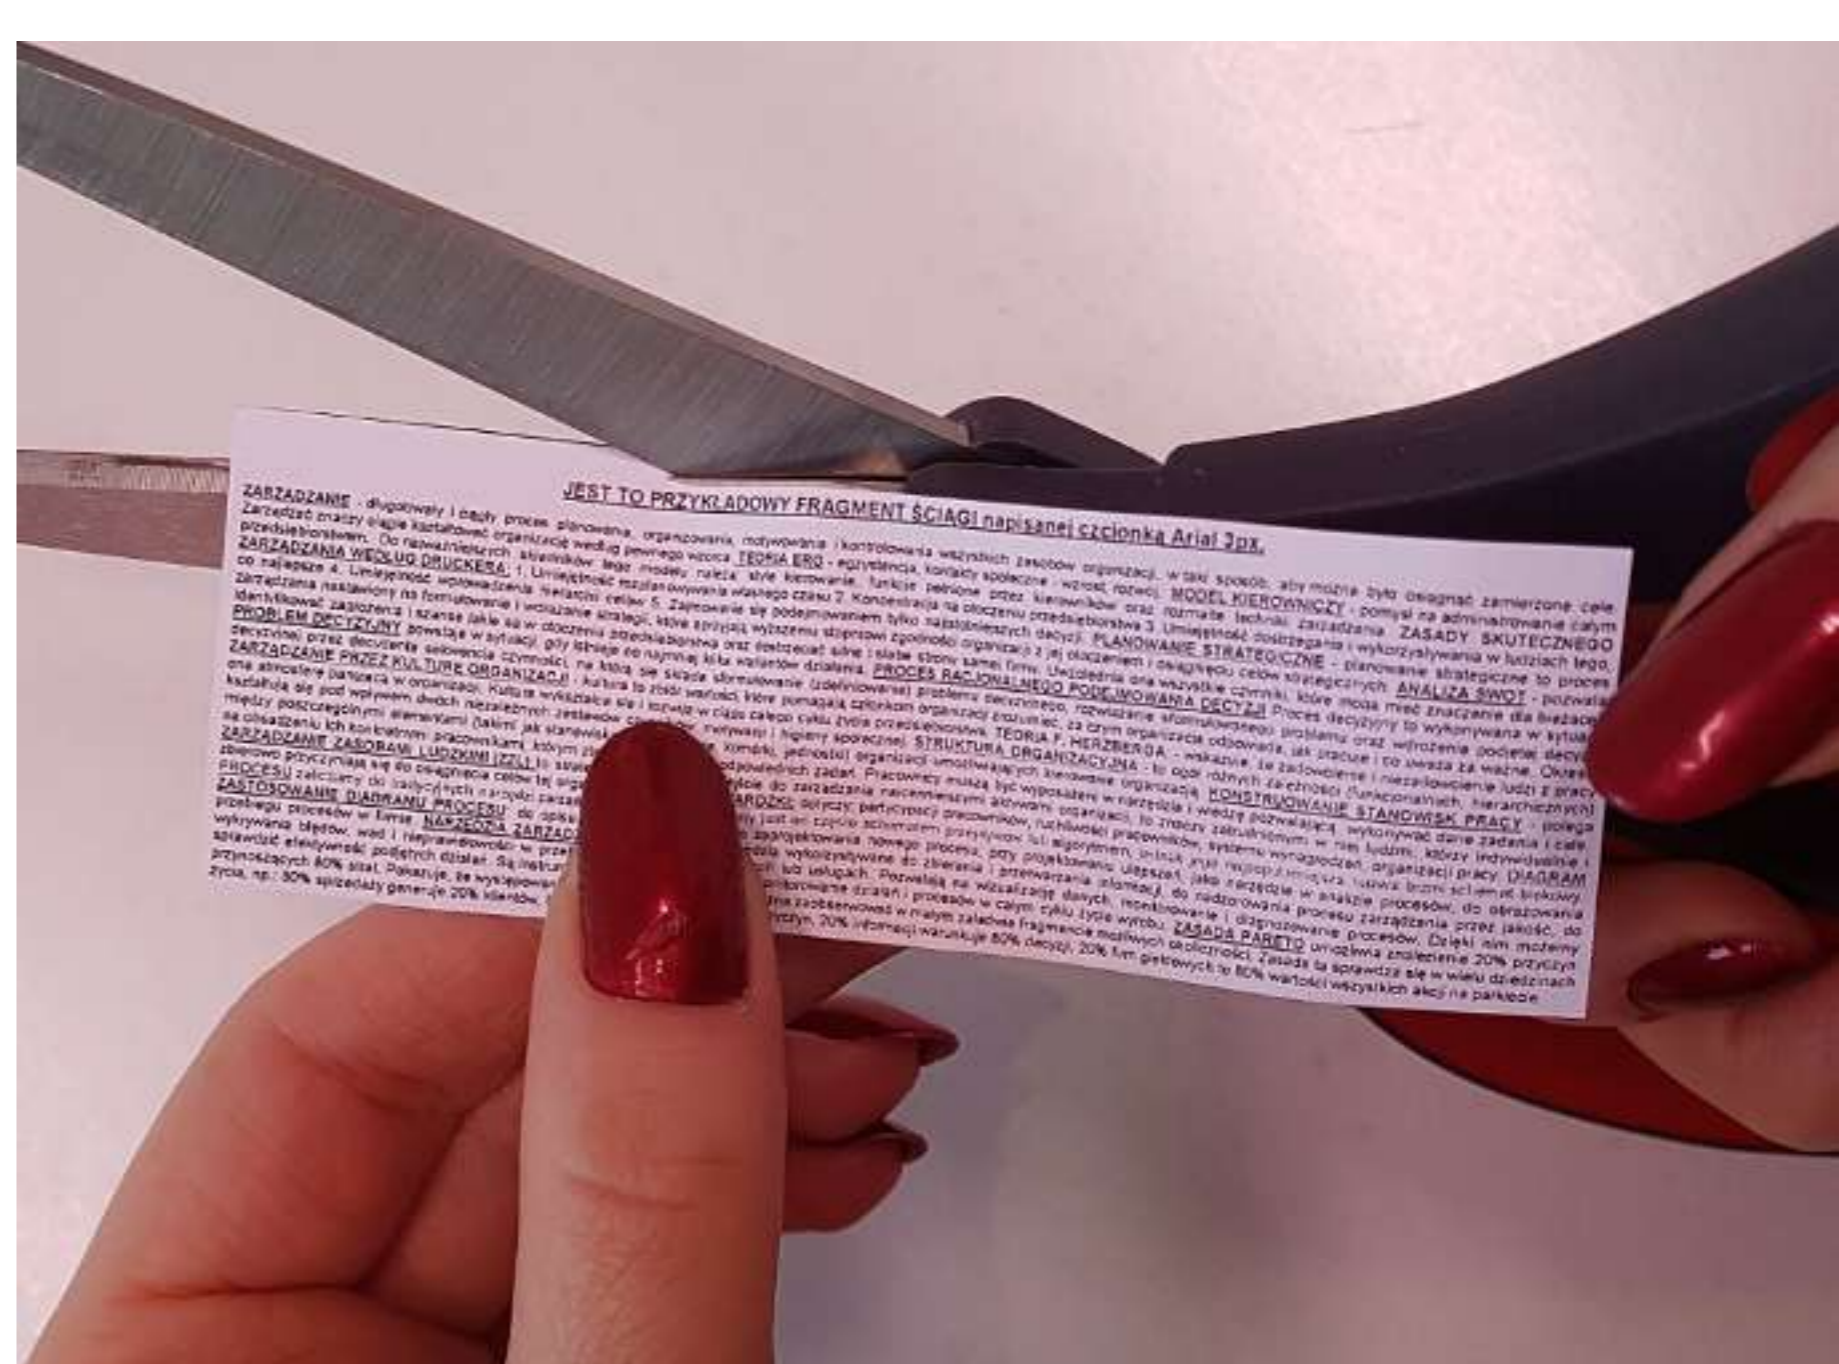 JEST TO PRZYKŁADOWY FRAGMENT ŚCIĄGI napisanej czcionką Arial 3px.
ZARZĄDZANIE - długotrwały i ciągły proces planowania, organizowania, motywowania i kontrolowania wszystkich zasobów organizacji, w taki sposób, aby można było osiągnąć zamierzone cele
Zarządzać znaczy ciągle kształtować organizację według pewnego wzorca. TEORIA ERG - egzystencja, kontakty społeczne - wzrost, rozwój. MODEL KIEROWNICZY - pomysł na administrowanie całym
przedsiębiorstwem. Do najważniejszych składników tego modelu należą: style kierowania, funkcje pełnione przez kierowników oraz rozmaite techniki zarządzania. ZASADY SKUTECZNEGO
ZARZĄDZANIA WEDŁUG DRUCKERA: 1. Umiejętność rozplanowywania własnego czasu 2. Koncentracja na otoczeniu przedsiębiorstwa 3. Umiejętność dostrzegania i wykorzystywania w ludziach tego,
co najlepsze 4. Umiejętność wprowadzenia hierarchii celów 5. Zajmowanie się podejmowaniem tylko najistotniejszych decyzji. PLANOWANIE STRATEGICZNE - planowanie strategiczne to proces
zarządzania nastawiony na formułowanie i wdrażanie strategii, które sprzyjają wyższemu stopniowi zgodności organizacji z jej otoczeniem i osiągnięciu celów strategicznych. ANALIZA SWOT - pozwala
identyfikować zagrożenia i szanse jakie są w otoczeniu przedsiębiorstwa oraz dostrzegać silne i słabe strony samej firmy. Uwzględnia ona wszystkie czynniki, które mogą mieć znaczenie dla bieżącej
PROBLEM DECYZYJNY powstaje w sytuacji, gdy istnieje co najmniej kilka wariantów działania. PROCES RACJONALNEGO PODEJMOWANIA DECYZJI Proces decyzyjny to wykonywana w
decyzyjnej przez decydenta sekwencja czynności, na którą się składa sformułowanie (zdefiniowanie) problemu decyzyjnego, rozwiązanie sformułowanego problemu oraz wdrożenia podjętej
ZARZĄDZANIE PRZEZ KULTURĘ ORGANIZACJI - kultura to zbiór wartości, które pomagają członkom organizacji zrozumieć, za czym organizacja odpowiada, jak pracuje i co uważa za ważne.
ona atmosferę panującą w organizacji. Kultura wykształca się i rozwija w ciągu całego cyklu życia przedsiębiorstwa. TEORIA F. HERZBERGA - wskazuje, że zadowolenie i niezadowolenie ludzi z pracy
kształtują się pod wpływem dwóch niezależnych zestawów motywacji i higieny społecznej. STRUKTURA ORGANIZACYJNA - to ogół różnych zależności (funkcjonalnych, hierarchicznych)
między poszczególnymi elementami (takimi jak komórki, jednostki) organizacji umożliwiających kierowanie organizacją. KONSTRUOWANIE STANOWISK PRACY - polega
na obsadzeniu ich konkretnym pracownikami, którym odpowiednich zadań. Pracownicy muszą być wyposażeni w narzędzia i wiedzę pozwalającą wykonywać dane zadania i cele
ZARZĄDZANIE ZASOBAMI LUDZKIMI (ZZL) to do zarządzania najcenniejszymi aktywami organizacji, to znaczy zatrudnionymi w nim ludźmi, którzy indywidualnie i
zbiorowo przyczyniają się do osiągnięcia celów tej dotyczy: partycypacji pracowników, ruchliwości pracowników, systemu wynagrodzeń, organizacji pracy. DIAGRAM
PROCESU zaliczamy do tradycyjnych narzędzi jest on czysto schematem przepływów lub algorytmem, schemat blokowy.
ZASTOSOWANIE DIAGRAMU PROCESU: do zaprojektowania nowego procesu, przy projektowaniu ulepszeń, jako narzędzie w analizie procesów, do obrazowania
przebiegu procesów w firmie. NARZĘDZIA wykorzystywane do zbierania i przetwarzania informacji, do nadzorowania procesu zarządzania przez jakość, do
wykrywania błędów, wad i nieprawidłowości w lub usługach. Pozwalają na wizualizację danych, monitorowanie i diagnozowanie procesów. Dzięki nim możemy
sprawdzić efektywność podjętych działań. Są monitorowanie działań i procesów w całym cyklu życia wyrobu. ZASADA PARETO umożliwia znalezienie 20% przyczyn
przynoszących 80% strat. Pokazuje, że zaobserwować w małym zaledwie fragmencie możliwych okoliczności. Zasada ta sprawdza się w wielu dziedzinach
życia, np.: 80% sprzedaży generuje 20% klientów, 20% informacji warunkuje 80% decyzji, 20% firm giełdowych to 80% wartości wszystkich akcji na parkiecie.